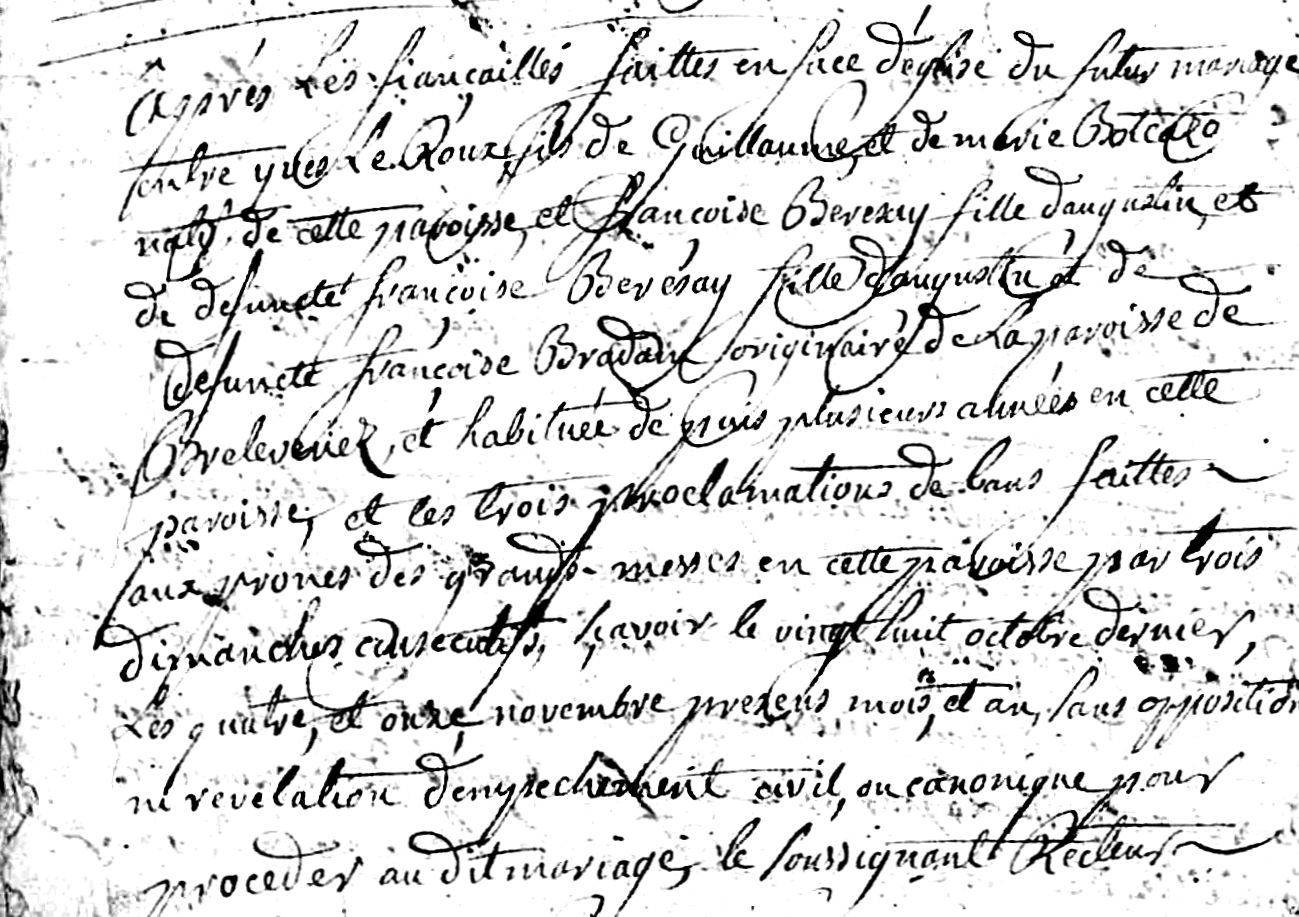 après les fiançailles faittes en face d'église du futur mariage
entre yves Le Roux fils de Guillaume, et de marie Botcazo
natif de cette paroisse, et francoise Berexay fille d'augustin, et
de defuncte françoise Berésay fille d'augustin et de
defuncte françoise Bradain originaire de La paroisse de
Brelevenez, et habituée de puis plusieurs années en cette
paroisse, et les trois proclamations de bans faittes
aux prones des grands-messes en cette paroisse par trois
dimanches consecutifs, sçavoir le vingt huit octobre dernier,
Les quatre, et onze novembre presens mois, et an, sans opposition
ni revelation d'empechement civil, ou canonique pour
proceder au dit mariage, le soussignant Recteur